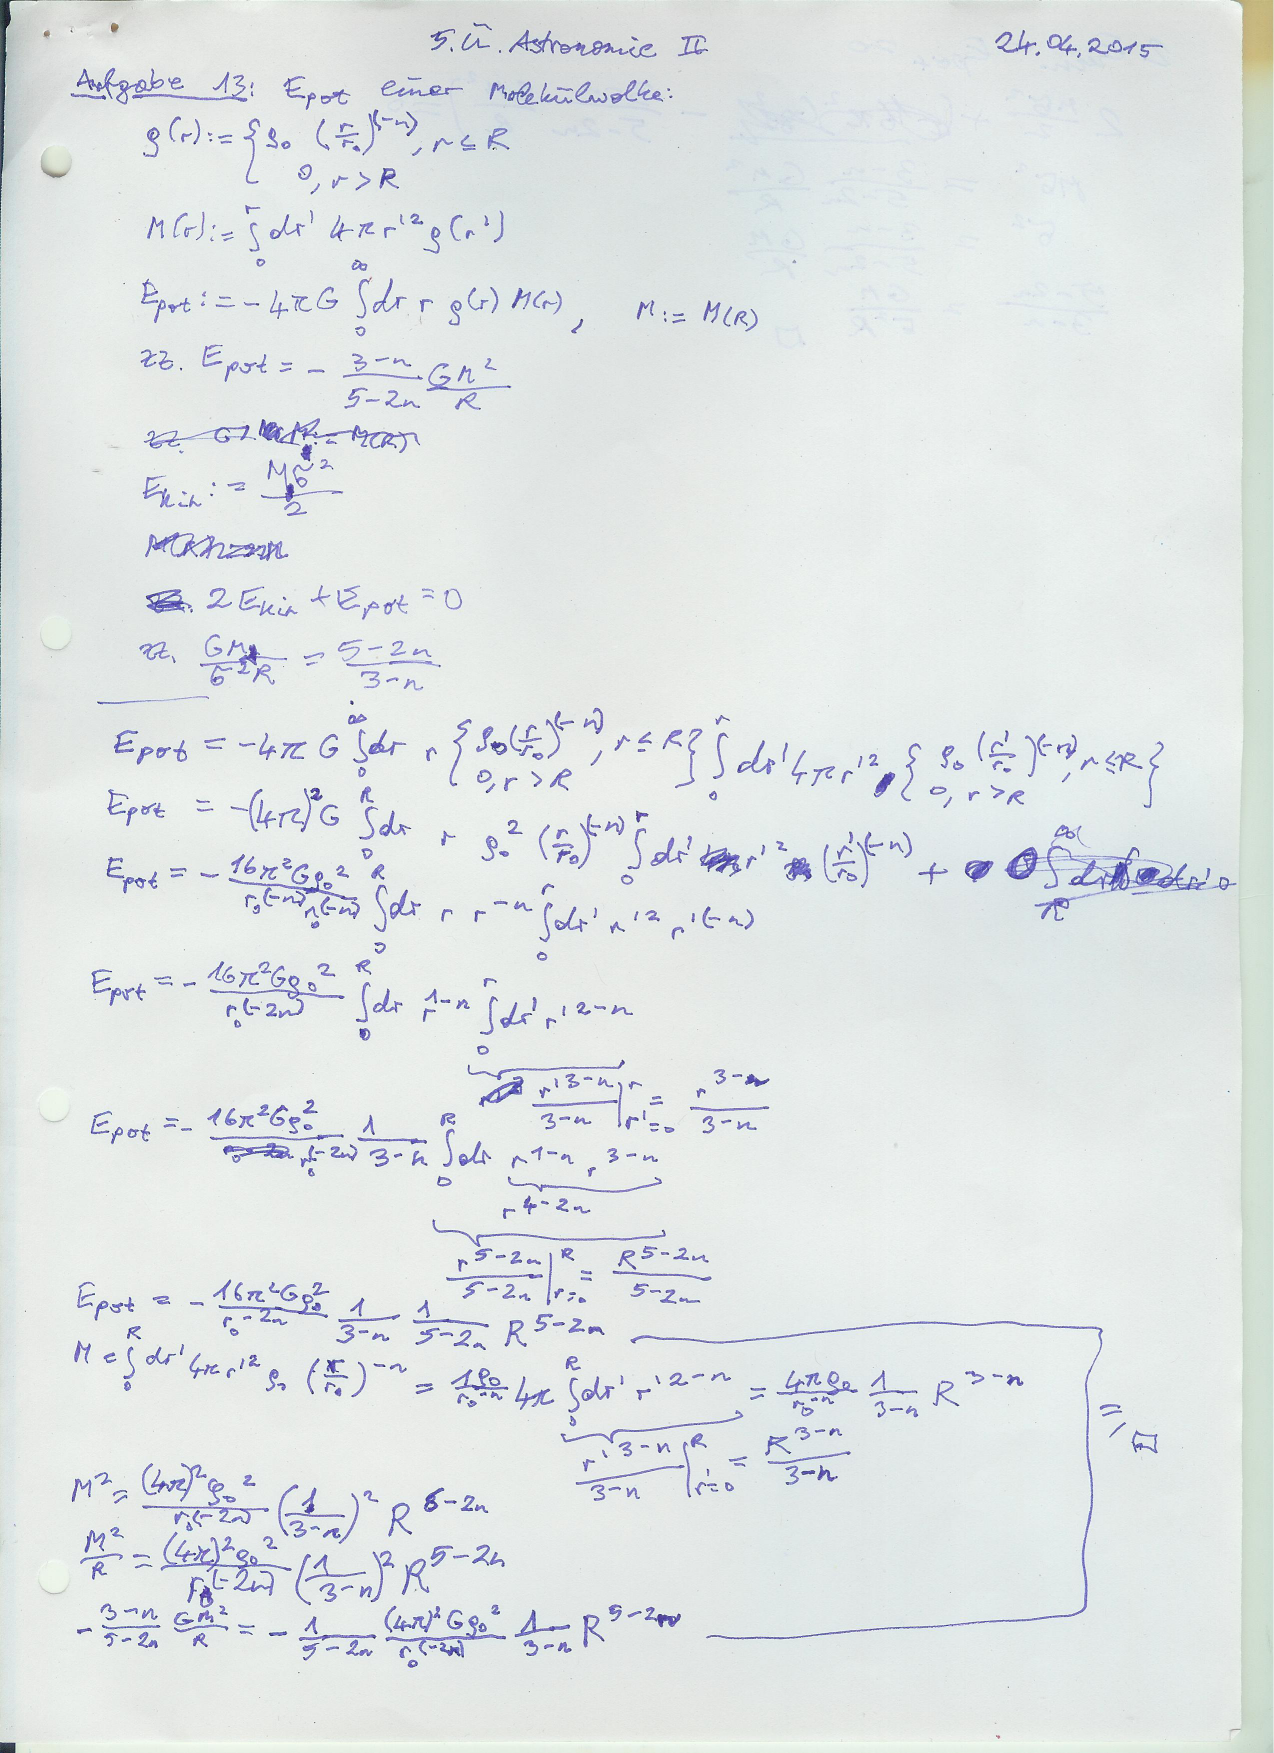 5. Ü. Astronomie II 24.04.2015
Aufgabe 13: Epot einer Molekülwolke:
ρ(r) := { ρ₀ (r/r₀)^(-n), r ≤ R
0, r > R
M(r) := ∫₀^r dr' 4π r'² ρ(r')
Epot := -4πG ∫₀^∞ dr r ρ(r) M(r), M := M(R)
zz. Epot = - (3-n)/(5-2n) GM²/R
Ekin := Mσ²/2
2 Ekin + Epot = 0
zz. GM/(σ²R) = (5-2n)/(3-n)
Epot = -4πG ∫₀^∞ dr r { ρ₀(r/r₀)^(-n), r ≤ R; 0, r > R } ∫₀^r dr' 4π r'² { ρ₀ (r'/r₀)^(-n), r ≤ R; 0, r > R }
Epot = -(4π)² G ∫₀^R dr r ρ₀² (r/r₀)^(-n) ∫₀^r dr' r'² (r'/r₀)^(-n) + 0
Epot = - 16π²Gρ₀²/(r₀^(-n) r₀^(-n)) ∫₀^R dr r r^-n ∫₀^r dr' r'² r'^(-n)
Epot = - 16π²Gρ₀²/r₀^(-2n) ∫₀^R dr r^1-n ∫₀^r dr' r'^2-n
r'^3-n/(3-n) |_r'=0^r = r^3-n/(3-n)
Epot = - 16π²Gρ₀²/r₀^(-2n) 1/(3-n) ∫₀^R dr r^1-n r^3-n
r^4-2n
r^5-2n/(5-2n) |_r=0^R = R^5-2n/(5-2n)
Epot = - 16π²Gρ₀²/r₀^-2n 1/(3-n) 1/(5-2n) R^5-2n
M = ∫₀^R dr' 4π r'² ρ₀ (r/r₀)^-n = 1ρ₀/r₀^-n 4π ∫₀^R dr' r'^2-n = 4πρ₀/r₀^-n 1/(3-n) R^3-n
r'^3-n/(3-n) |_r'=0^R = R^3-n/(3-n)
=, □
M² = (4π)²ρ₀²/r₀^(-2n) (1/(3-n))² R^6-2n
M²/R = (4π)²ρ₀²/r₀^(-2n) (1/(3-n))² R^5-2n
- (3-n)/(5-2n) GM²/R = - 1/(5-2n) (4π)²Gρ₀²/r₀^(-2n) 1/(3-n) R^5-2n